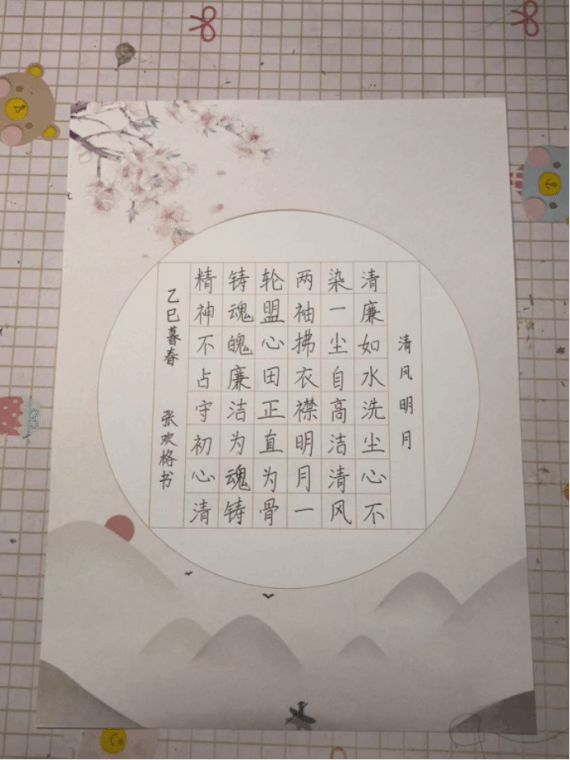 清风明月
清廉如水洗尘心不
染一尘自高洁清风
两袖拂衣襟明月一
轮盟心田正直为骨
铸魂魄廉洁为魂铸
精神不占守初心清
乙巳暮春 张欢格书